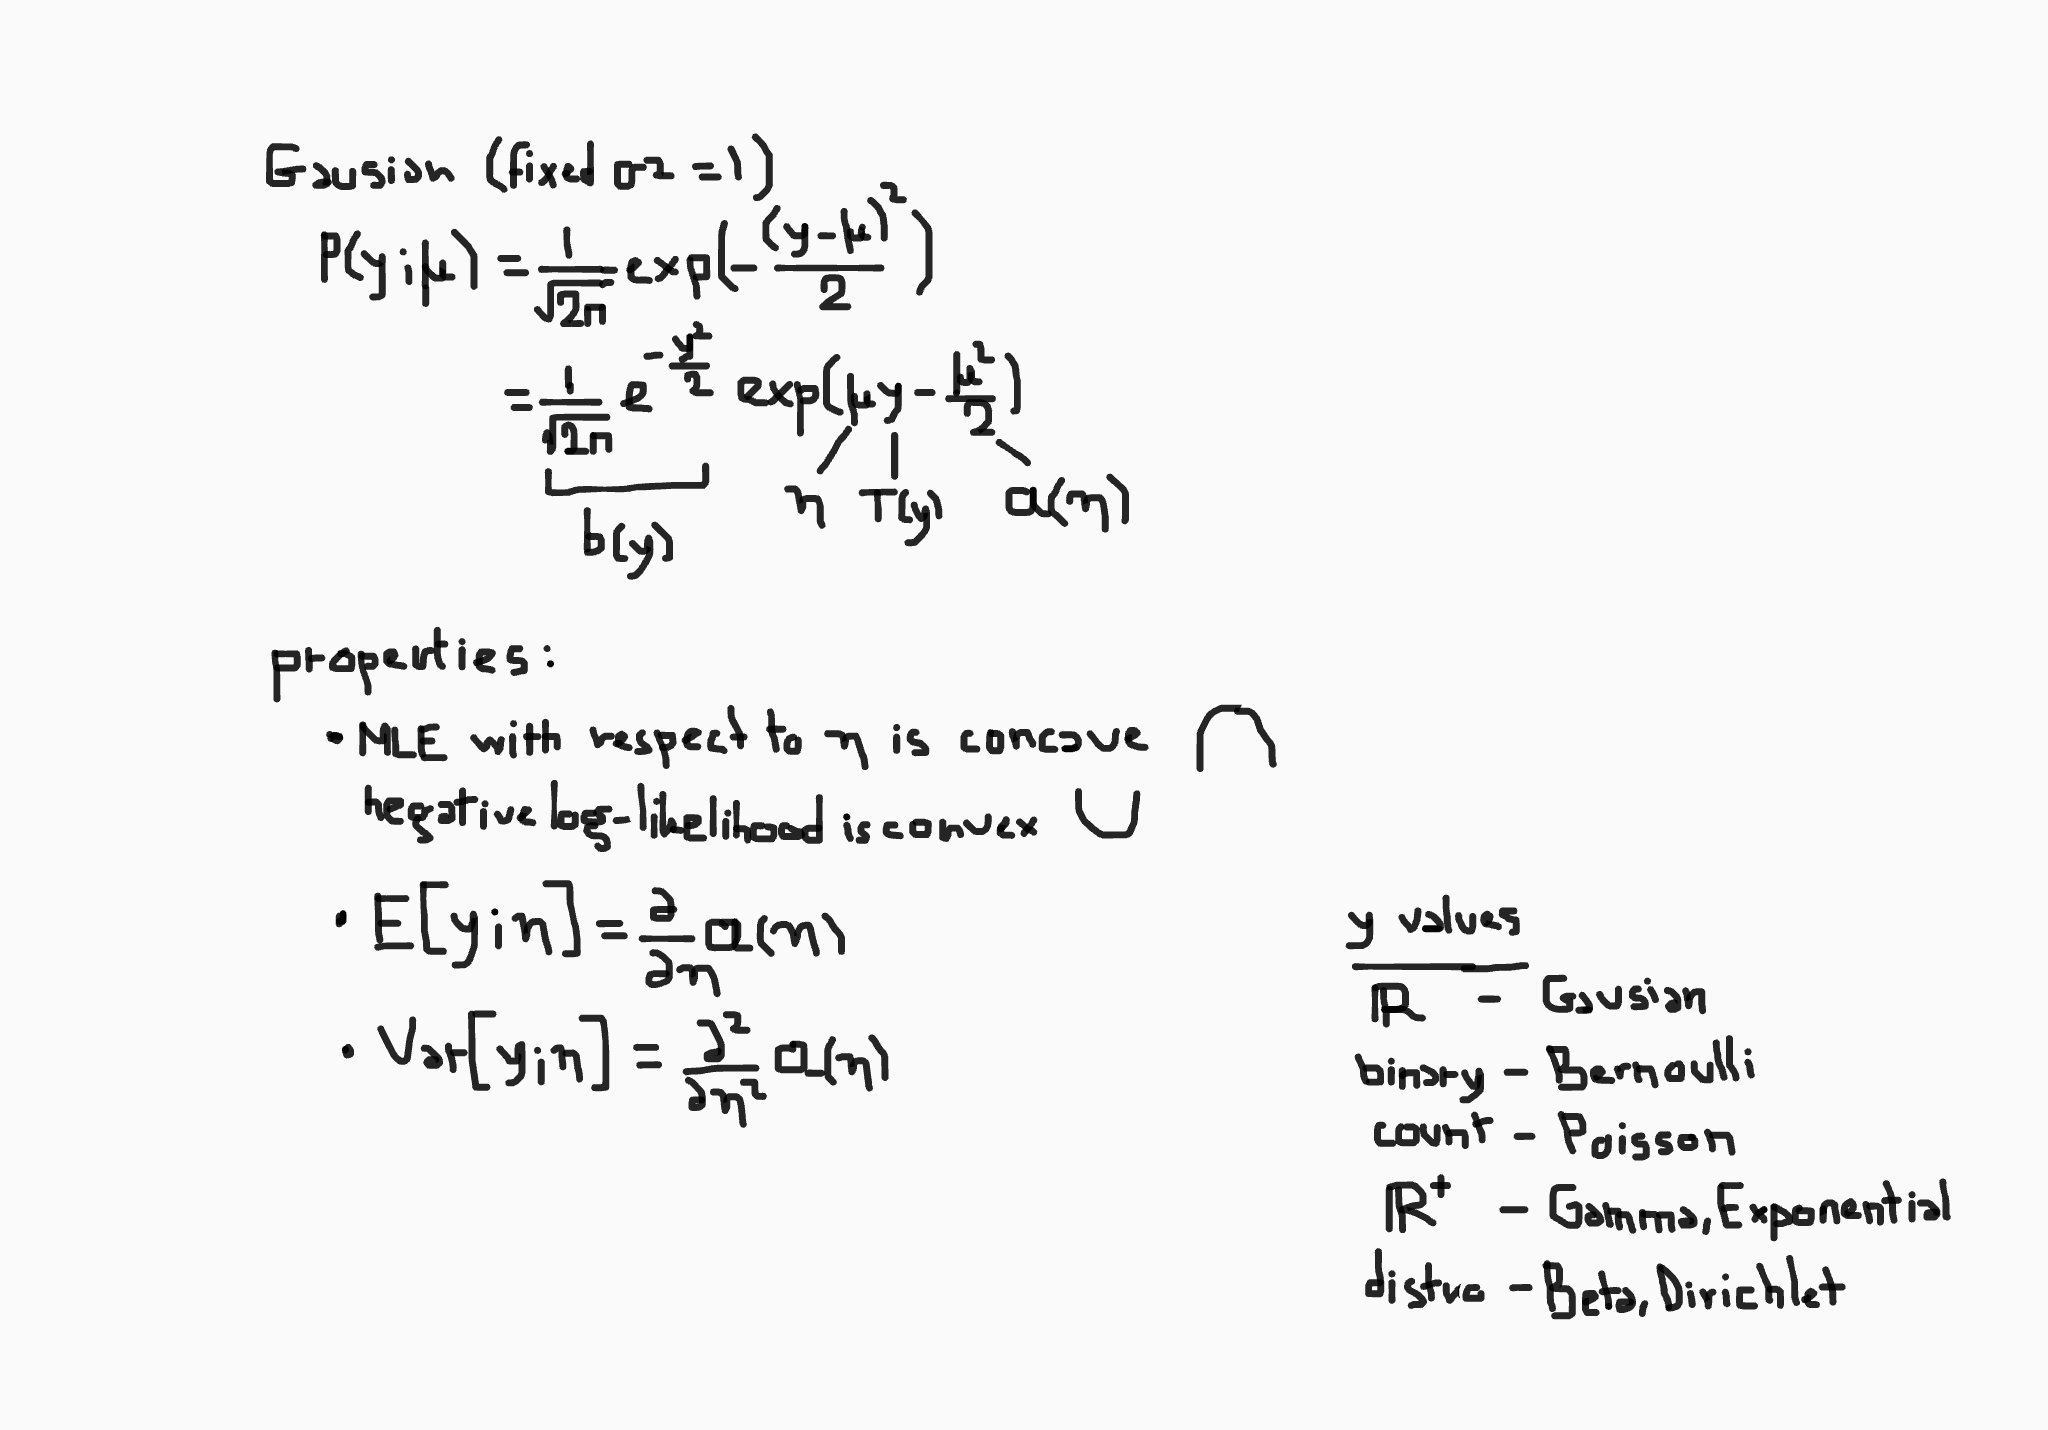 Gausian (fixed σ2 = 1)
P(y; μ) = 1/√2π exp(-(y-μ)²/2)
= 1/√2π e^(-y²/2) exp(μy - μ²/2)
η T(y) a(η)
b(y)
properties:
• MLE with respect to η is concave
negative log-likelihood is convex
• E[y;η] = ∂/∂η a(η)
• Var[y;η] = ∂²/∂η² a(η)
y values
ℝ - Gausian
binary - Bernoulli
count - Poisson
ℝ⁺ - Gamma, Exponential
- Beta, Dirichlet